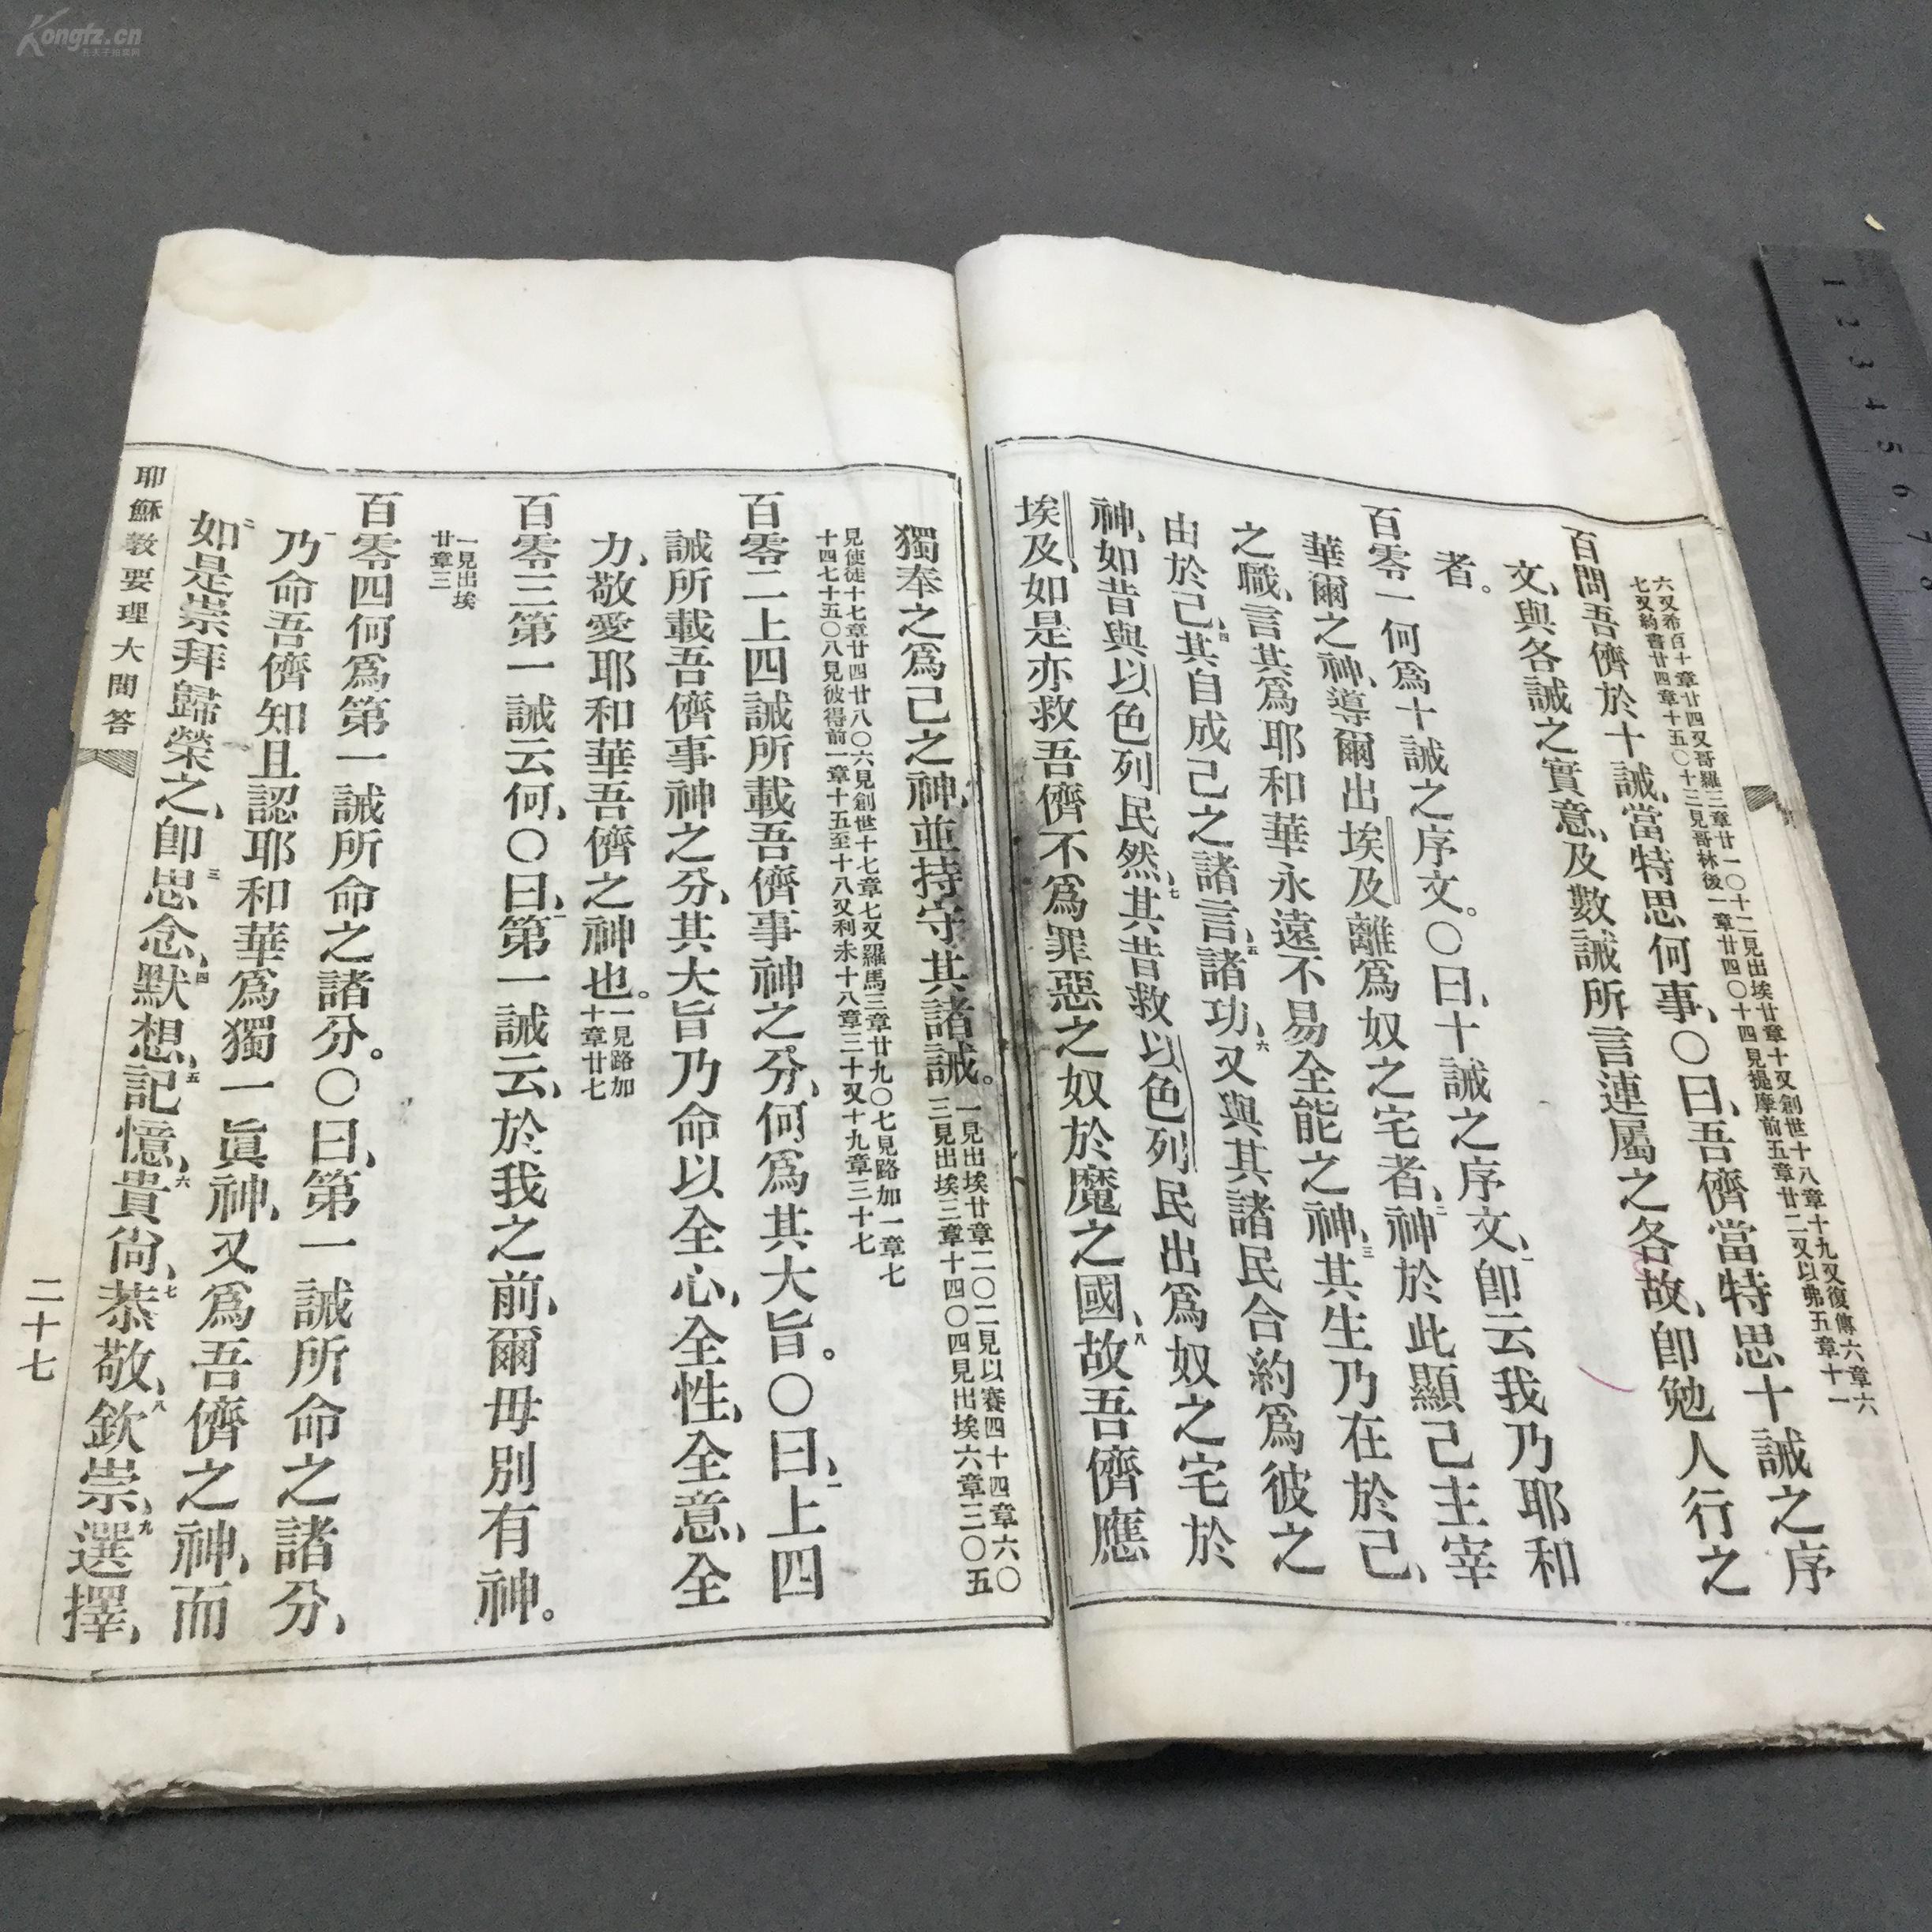 六又希百十章廿四又哥羅三章廿一〇十二見出埃廿章十又創世十八章十九又復傳六章六
七又約書廿四章十五〇十三見哥林後一章廿四〇十四見提摩前五章廿二又以弗五章十一
百問吾儕於十誡、當特思何事、〇曰、吾儕當特思十誡之序
文、與各誡之實意、及數誡所言連屬之各故、卽勉人行之
者。
百零一何爲十誡之序文。〇曰、十誡之序文、一卽云我乃耶和
華爾之神、導爾出埃及離爲奴之宅者、二神於此顯己主宰
之職、言其爲耶和華永遠不易全能之神、三其生乃在於己、
由於己、四其自成己之諸言、五諸功、六又與其諸民合約爲彼之
神、如昔與以色列民然、七其昔救以色列民出爲奴之宅於
埃及、如是亦救吾儕不爲罪惡之奴於魔之國、八故吾儕應
獨奉之爲己之神、並持守其諸誡。
一見出埃廿章二〇二見以賽四十四章六〇
三見出埃三章十四〇四見出埃六章三〇五
見使徒十七章廿四廿八〇六見創世十七章七又羅馬三章廿九〇七見路加一章七
十四七十五〇八見彼得前一章十五至十八又利未十八章三十又十九章三十七
百零二上四誡所載吾儕事神之分、何爲其大旨。〇曰、一上四
誡所載吾儕事神之分、其大旨乃命以全心、全性、全意、全
力、敬愛耶和華吾儕之神也。
一見路加
十章廿七
百零三第一誡云何、〇曰、一第一誡云、於我之前、爾毋別有神。
一見出埃
廿章三
百零四何爲第一誡所命之諸分。〇曰、第一誡所命之諸分、
一乃命吾儕知且認耶和華爲獨一眞神、又爲吾儕之神、而
二如是崇拜歸榮之、卽三思念、四默想、五記憶、六貴尙、七恭敬、八欽崇、九選擇、
耶穌敎要理大問答
二十七
Kongfz.cn